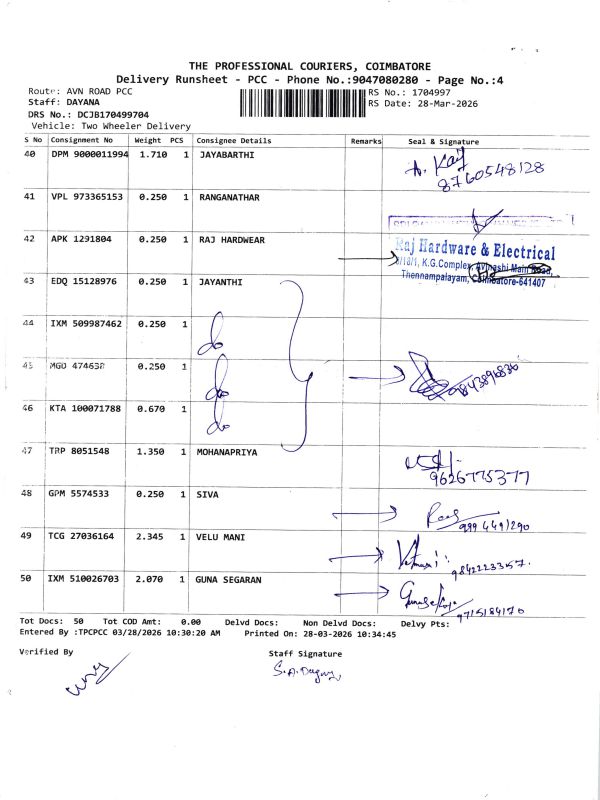 THE PROFESSIONAL COURIERS, COIMBATORE
Delivery Runsheet - PCC - Phone No.:9047080280 - Page No.:4
Route: AVN ROAD PCC RS No.: 1704997
Staff: DAYANA RS Date: 28-Mar-2026
DRS No.: DCJB170499704
Vehicle: Two Wheeler Delivery
S No Consignment No Weight PCS Consignee Details Remarks Seal & Signature
40 DPM 9000011994 1.710 1 JAYABARTHI
8760548128
41 VPL 973365153 0.250 1 RANGANATHAR
42 APK 1291804 0.250 1 RAJ HARDWEAR
Raj Hardware & Electrical
K.G.Complex, Avinashi Main Road,
Thennampalayam, Coimbatore-641407
43 EDQ 15128976 0.250 1 JAYANTHI
44 IXM 509987462 0.250 1 do
45 MGD 474638 0.250 1 do
9843896836
46 KTA 100071788 0.670 1 do
47 TRP 8051548 1.350 1 MOHANAPRIYA
9626775377
48 GPM 5574533 0.250 1 SIVA
49 TCG 27036164 2.345 1 VELU MANI
9842223357
50 IXM 510026703 2.070 1 GUNA SEGARAN
9715184170
Tot Docs: 50 Tot COD Amt: 0.00 Delvd Docs: Non Delvd Docs: Delvy Pts:
Entered By :TPCPCC 03/28/2026 10:30:20 AM Printed On: 28-03-2026 10:34:45
Verified By Staff Signature